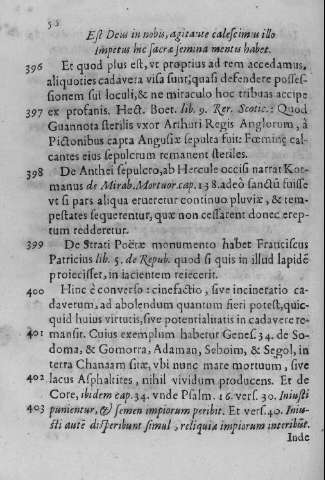 58
Est Deus in nobis, agitante calescimus illo
Impetus hic sacræ semina mentis habet.
396 Et quod plus est, vt proprius ad rem accedamus,
aliquoties cadavera visa sunt, quasi defendere posses-
sionem sui loculi, & ne miraculo hoc tribuas accipe
397 ex profanis. Hect. Boet. lib. 9. Rer. Scotic.: Quod
Guannota sterilis vxor Arthuri Regis Anglorum, à
Pictonibus capta Angusiæ sepulta fuit: Fœminę cal-
cantes eius sepulcrum remanent steriles.
398 De Anthei sepulcro, ab Hercule occisi narrat Kor-
manus de Mirab. Mortuor. cap. 138. adeò sanctũ fuisse
vt si pars aliqua erueretur continuo pluviæ, & tem-
pestates sequerentur, quæ non cessarent donec erep-
tum redderetur.
399 De Strati Poëtæ monumento habet Franciscus
Patricius lib. 5. de Repub. quod si quis in illud lapidẽ
proiecisset, in iacientem reiecerit.
400 Hinc è converso: cinefactio, sive incineratio ca-
daverum, ad abolendum quantum fieri potest, quic-
quid huius virtutis, sive potentialitatis in cadavere re-
401 mansit. Cuius exemplum habetur Genes. 34. de So-
doma, & Gomorra, Adaman, Seboim, & Segol, in
terra Chanaam sitæ, vbi nunc mare mortuum, sive
402 lacus Asphaltites, nihil vividum producens. Et de
Core, ibidem cap. 34. vnde Psalm. 16. vers. 30. Iniusti
403 punientur, & semen impiorum peribit. Et vers. 40. Iniu-
sti autẽ disperibunt simul, reliquiæ impiorum interibũt.
Inde